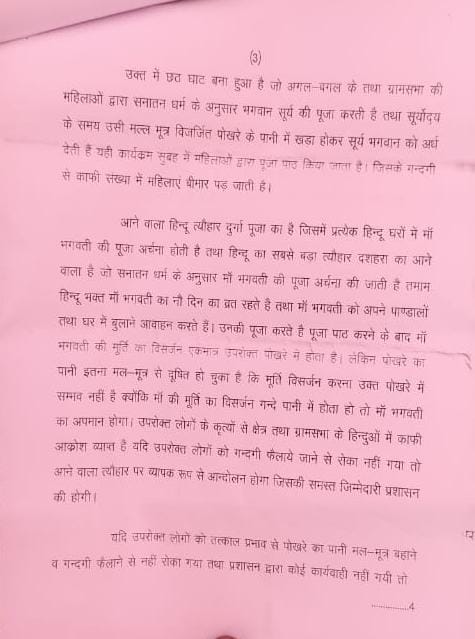 (3)
उक्त में छठ घाट बना हुआ है जो अगल-बगल के तथा ग्रामसभा की
महिलाओं द्वारा सनातन धर्म के अनुसार भगवान सूर्य की पूजा करती है तथा सूर्योदय
के समय उसी मल्ल मूत्र विजर्जित पोखरे के पानी में खडा होकर सूर्य भगवान को अर्घ
देती हैं यही कार्यक्रम सुबह में महिलाओं द्वारा पूजा पाठ किया जाता है। जिसके गन्दगी
से काफी संख्या में महिलाएं बीमार पड़ जाती है।
आने वाला हिन्दू त्यौहार दुर्गा पूजा का है जिसमें प्रत्येक हिन्दू घरों में माँ
भगवती की पूजा अर्चना होती है तथा हिन्दू का सबसे बड़ा त्यौहार दशहरा का आने
वाला है जो सनातन धर्म के अनुसार माँ भगवती की पूजा अर्चना की जाती है तमाम
हिन्दू भक्त माँ भगवती का नौ दिन का व्रत रहते है तथा माँ भगवती को अपने पाण्डालों
तथा घर में बुलाने आवाहन करते हैं। उनकी पूजा करते है पूजा पाठ करने के बाद माँ
भगवती की मुर्ति का विसर्जन एकमात्र उपरोक्त पोखरे में होता है। लेकिन पोखरे का
पानी इतना मल-मूत्र से दूषित हो चुका है कि मूर्ति विसर्जन करना उक्त पोखरे में
सम्भव नहीं है क्योंकि माँ की मूर्ति का विसर्जन गन्दे पानी में होता हो तो माँ भगवती
का अपमान होगा। उपरोक्त लोगों के कृत्यों से क्षेत्र तथा ग्रामसभा के हिन्दुओं में काफी
आक्रोश व्याप्त है यदि उपरोक्त लोगों को गन्दगी फैलाये जाने से रोका नहीं गया तो
आने वाला त्यौहार पर व्यापक रूप से आन्दोलन होगा जिसकी समस्त जिम्मेदारी प्रशासन
की होगी।
यदि उपरोक्त लोगों को तत्काल प्रभाव से पोखरे का पानी मल-मूत्र बहाने
व गन्दगी फैलाने से नहीं रोका गया तथा प्रशासन द्वारा कोई कार्यवाही नहीं गयी तो
...............4